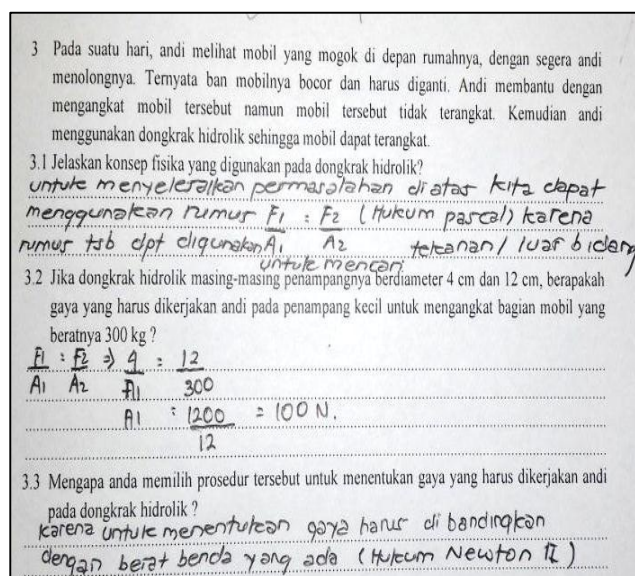 3 Pada suatu hari, andi melihat mobil yang mogok di depan rumahnya, dengan segera andi
menolongnya. Ternyata ban mobilnya bocor dan harus diganti. Andi membantu dengan
mengangkat mobil tersebut namun mobil tersebut tidak terangkat. Kemudian andi
menggunakan dongkrak hidrolik sehingga mobil dapat terangkat.
3.1 Jelaskan konsep fisika yang digunakan pada dongkrak hidrolik?
untuk menyelesaikan permasalahan diatas kita dapat
menggunakan rumus F1 = F2 (Hukum pascal) karena
rumus tsb dpt digunakan A1 A2 tekanan / luas bidang
untuk mencari
3.2 Jika dongkrak hidrolik masing-masing penampangnya berdiameter 4 cm dan 12 cm, berapakah
gaya yang harus dikerjakan andi pada penampang kecil untuk mengangkat bagian mobil yang
beratnya 300 kg ?
F1 = F2 ⇒ 4 = 12
A1 A2 A1 300
A1 = 1200 = 100 N.
12
3.3 Mengapa anda memilih prosedur tersebut untuk menentukan gaya yang harus dikerjakan andi
pada dongkrak hidrolik ?
karena untuk menentukan gaya harus di bandingkan
dengan berat benda yang ada (Hukum Newton II)